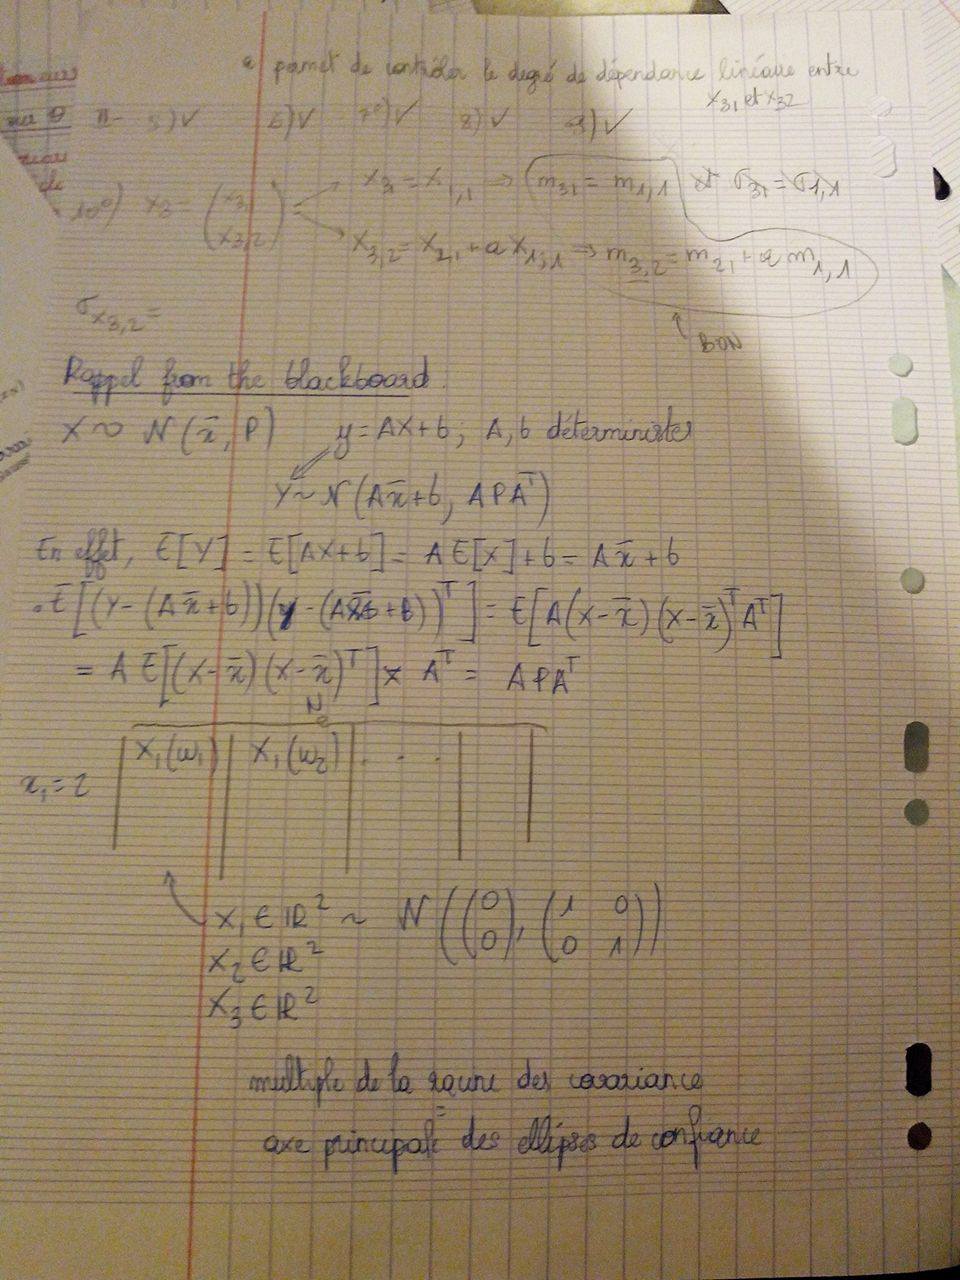 a permet de contrôler le degré de dépendance linéaire entre
x₃₁ et x₃₂
II - 5)√ 6)√ 7°)√ 8)√ 9)√
10°) X₃ = (X₃,₁ X₃,₂) X₃,₁ = X₁,₁ → m₃,₁ = m₁,₁ et σ₃,₁ = σ₁,₁
X₃,₂ = X₂,₁ + a X₁,₁ ⇒ m₃,₂ = m₂,₁ + a m₁,₁
BON
σ_{X₃,₂} =
Rappel from the blackboard
X ~ N(x̄, P) y = AX+b ; A, b déterministes
Y ~ N(Ax̄+b, APAᵀ)
En effet, E[Y] = E[AX+b] = A E[X] + b = A x̄ + b
• E[(Y-(Ax̄+b))(Y-(Ax̄+b))ᵀ] = E[A(X-x̄)(X-x̄)ᵀAᵀ]
= A E[(X-x̄)(X-x̄)ᵀ] × Aᵀ = APAᵀ
x₁ = 2 | X₁(ω₁) | X₁(ω₂) | . . . | |
X₁ ∈ ℝ² ~ N((0 0), (1 0 0 1))
X₂ ∈ ℝ²
X₃ ∈ ℝ²
multiple de la racine des covariance
=
axe principale des ellipses de confiance